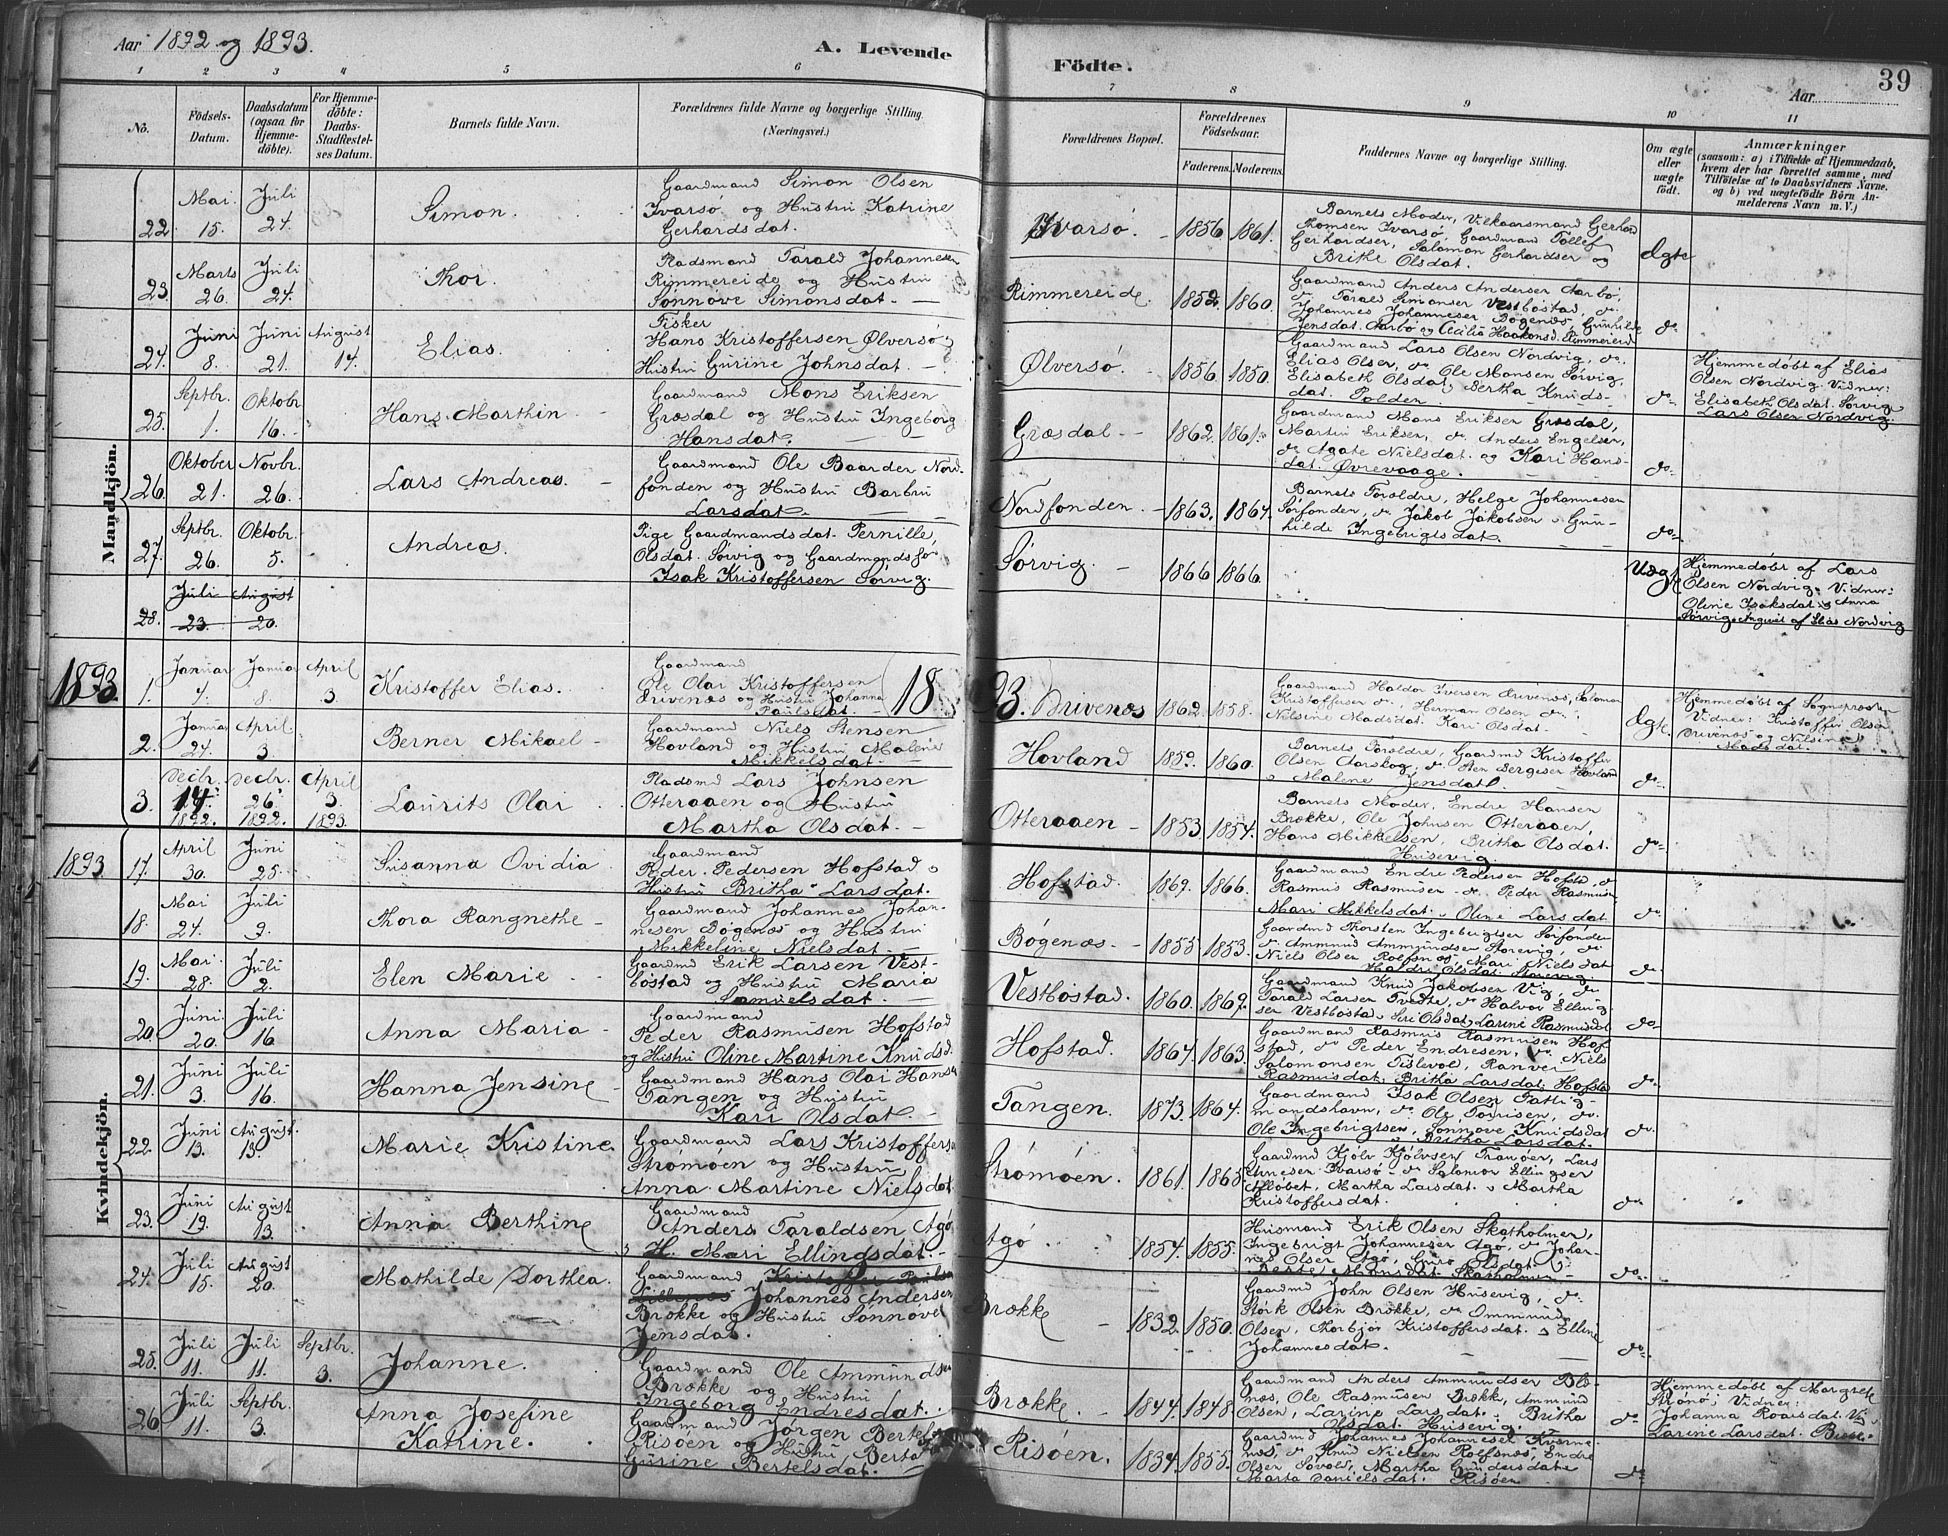 Aar 1892 og 1893.
A. Levende Födte.
Aar
39
1 2 3 4 5 6 7 8 9 10 11
No.
Födsels-
Datum.
Daabsdatum
(ogsaa for
Hjemme-
döbte).
For Hjemme-
döbte:
Daabs-
Stadfæstel-
ses Datum.
Barnets fulde Navn.
Forældrenes fulde Navne og borgerlige Stilling
(Næringsvei.)
Forældrenes Bopæl.
Forældrenes
Födselsaar.
Faderens. Moderens.
Faddernes Navne og borgerlige Stilling.
Om ægte
eller
uægte
födt.
Anmærkninger
(saasom: a) i Tilfælde af Hjemmedaab,
hvem der har forrettet samme, med
Tilföielse af to Daabsvidners Navne.
og b) ved uægtefödte Börn An-
melderens Navn m. V.)
Mandkjön.
22. Mai 15. Juli 24. Simon.
Gaardmand Simon Olsen
Ivarsø og Hustru Katrine
Gerhardsdat.
Ivarsø. 1856 1861.
Barnets Moder, Vilkaarsmand Gerhard
Thomsen Ivarsø, Gaardmand Tollef
Gerhardsen, Salomon Gerhardsen og
Brithe Olsdat.
Ægte
23. Marts 26. Juli 24. Thor.
Pladsmand Tarald Johannesen
Rimmereide og Hustru
Sønnøve Simonsdat.
Rimmereide. 1852. 1860.
Gaardmand Anders Andersen Aarbø,
do Tarald Simonsen Vestbøstad, do
Johannes Johannesen Bøgenæs, Gunhilde
Jensdat. Aarbø og Cecilia Haakonsd. Rimmereid
do.
24. Juni 8. Juni 21. August 14. Elias.
Fisker
Hans Kristoffersen Ølversø og
Hustru Gurine Johnsdat.
Ølversø. 1856. 1850.
Gaardmand Lars Olsen Nordvig, do
Elias Olsen, do Ole Monsen Sørvig,
Elisabeth Olsdat, Bertha Knuds-
dat. Folden.
do.
Hjemmedøbt af Elias
Olsen Nordvig. Vidner:
Elisabeth Olsdat. Sørvig
Lars Olsen Nordvig.
25. Septbr. 1. Oktobr. 16. Hans Marthin
Gaardmand Mons Eriksen
Græsdal og Hustru Ingeborg
Hansdat.
Græsdal 1862. 1861.
Gaardmand Mons Eriksen Græsdal,
Martin Eriksen, do Anders Engelsen,
do Agate Nielsdat. og Kari Hans-
dat. Øvrevaage.
do.
26. Oktober 21. Novbr. 26. Lars Andreas.
Gaardmand Ole Baardsen Nord-
fonden og Hustru Barbru
Larsdat.
Nordfonden 1863. 1864.
Barnets Foræ̈ldre, Helge Johannesen
Sørfonden, do Jakob Jakobsen, Gun-
hilde Ingebrigtsdat.
do.
27. Septbr. 26. Oktobr. 5. Andreas.
Pige Gaardmandsdat. Pernille
Olsdat. Sørvig og Gaardmandssø
Isak Kristoffersen Sørvig.
Sørvig. 1866 1866.
Uægte
Hjemmedøbt af Lars
Olsen Nordvig. Vidner:
Oline Isaksdat. & Anna
Sørvig. Angivet af Elias Nordvig
28. Juli 23. August 20.
1893
1893.
1. Januar 7. Januar 8. April 3. Kristoffer Elias.
Gaardmand
Ole Olai Kristoffersen
Drivenæs og Hustru Johanna
Paulsdat.
Drivenæs 1862. 1858.
Gaardmand Haldor Iversen Drivenæs, Salomon
Kristoffersen do, Herman Olsen do,
Nilsine Madsdat. Kari Olsdat.
Ægte.
Hjemmedøbt af Sognepræsten
Vidner: Kristoffer Olsen
Drivenæs og Nilsine
Madsdat.
2. Januar 24. April 3. Berner Mikael
Gaardmand Niels Stensen
Hovland og Hustru Malene
Mikkelsdat.
Hovland 1859. 1860.
Barnets Forældre, Gaardmd Kristoffer
Olsen Aarskog, do Sten Bergesen Hovland
& Malene Jensdat.
do.
3. Decbr. 14. 1892. Decbr. 26. 1892. April 3. 1893. Laurits Olai
Pladsmd Lars Johnsen
Otteraaen og Hustru
Martha Olsdat.
Otteraaen 1853. 1854.
Barnets Moder, Endre Hansen
Brække, Ole Johnsen Otteraaen,
Hans Mikkelsen, Britha Olsdat.
Husevig
do.
Kvindekjön.
1893
17. April 30. Juni 25. Susanna Ovidia
Gaardmand
Peder Pedersen Hofstad &
Hustru Britha Larsdat.
Hofstad. 1869. 1866.
Gaardmand Endre Pedersen Hofstad, do
Rasmus Rasmusen do. Peder Rasmusen
Mari Mikkelsdat. Oline Larsdat.
do.
18. Mai 24. Juli 9. Thora Rangnethe
Gaardmand Johannes Johan-
nesen Bøgenæs og Hustru
Mikkeline Nielsdat.
Bøgenæs. 1855 1853.
Gaardmd Thorsten Ingebrigtsen Sørfonden
do Ammund Ammundsen Storevig, do
Niels Olsen Rolfsnæs, Mari Nielsdat
Haldri Olsdat. Storevig.
do.
19. Mai 28. Juli 2. Elen Marie
Gaardmd Erik Larsen Vest-
bøstad og Hustru Maria
Samuelsdat.
Vestbøstad. 1860. 1869.
Gaardmand Knud Jakobsen Vig, do
Tarald Larsen Tvedte, do Halvor Elling-
sen Vestbøstad, Siri Olsdat, Larine Rasmusdat
do.
20. Juni 20. Juli 16. Anna Maria
Gaardmand
Peder Rasmusen Hofstad
og Hustru Oline Martine Knudsd.
Hofstad. 1864. 1863.
Gaardmand Rasmus Rasmusen Hof-
stad, do Peder Endresen, do Niels
Salomonsen Tislevol, Ranvei
Rasmusdat, Britha Larsdat. Hofstad
do.
21. Juni 3. Juli 16. Hanna Jensine
Gaardmand Hans Olai Hansen
Tangen og Hustru
Kari Olsdat
Tangen. 1873. 1864.
Gaardmand Isak Olsen Fatlig-
mandshavn, do Ole Torrisen, do
Ole Ingebrigtsen, Sønnøve Knudsdat
& Britha Larsdat.
do.
22. Juni 13. August 13. Marie Kristine
Gaardmand Lars Kristoffersen
Strømøen og Hustru
Anna Martine Nielsdat
Strømøen. 1861. 1865.
Gaardmd Kjølv Kjølvsen Tranøen, Lars
Ivarsø do Salomon Ellingsen
Martha Larsdat. & Martha
Kristoffersdat.
do.
23. Juni 19. August 13. Anna Berthine
Gaardmand
Anders Taraldsen Agø
& H. Mari Ellingsdat.
Agø. 1854. 1855.
Husmand Erik Olsen Skatholmen,
Ingebrigt Johannesen Agø, do Johan-
nes Olsen Agø, Guro Olsdat
Berte Monsdat. Skatholmen
do.
24. Juli 15. August 20. Mathilde Dorthea.
Gaardmand Kristoffer
Johannes Andersen
Brække og Hustru Sønnøve
Jensdat.
Brække 1832. 1850.
Gaardmand John Olsen Husevig, do
Størk Olsen Brække, do Ommund
Olsen, Thorbjør Kristoffersdat. & Elline
Johannesdat.
do.
25. Juli 11. Juli 11. Septbr. 3. Johanne.
Gaardmand Ole Ammundsen
Brække og Hustru
Ingeborg Endresdat.
Brække. 1844. 1848.
Gaardmand Anders Ammundsen
næs, Ole Rasmusen Brække, Ammund
Olsen, Larine Larsdat. Britha
Olsdat. Husevig.
do.
Hjemmedøbt af Margrete
Strønø; Vidner:
Johanna Roarsdat.
Larine Larsdat.
26. Juli 11. Septbr. 3. Anna Josefine
Katrine.
Gaardmand Jørgen Bertelsen
Risøen og Hustru Berta
Gurine Bertelsdat.
Risøen. 1834. 1855.
Gaardmand Johannes Johannesen Kværne-
næs, do Knud Nielsen Rolfsnæs, Endre
Olsen Søvold, Martha Gundersdat &
Marta Danielsdat. Risøen
do.